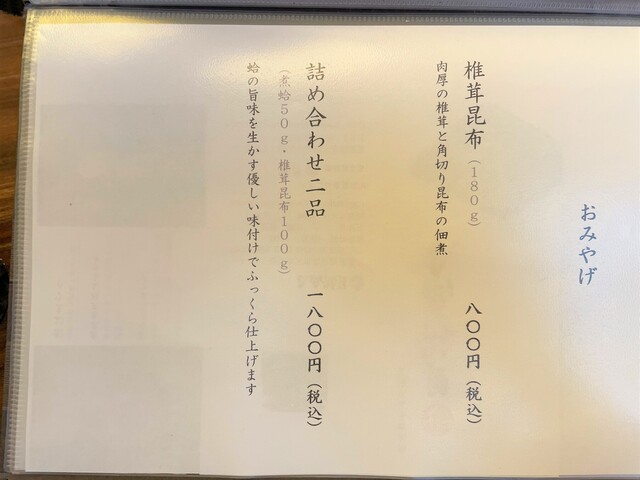 おみやげ
椎茸昆布（180g） 八〇〇円（税込）
肉厚の椎茸と角切り昆布の佃煮
詰め合わせ二品 一八〇〇円（税込）
（煮蛤50g・椎茸昆布100g）
蛤の旨味を生かす優しい味付けでふっくら仕上げます